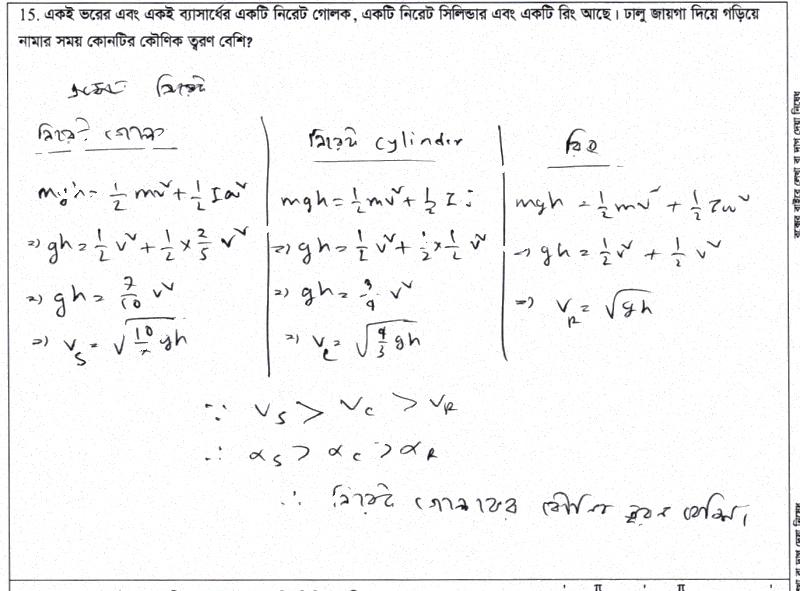 15. একই ভরের এবং একই ব্যাসার্ধের একটি নিরেট গোলক, একটি নিরেট সিলিন্ডার এবং একটি রিং আছে। ঢালু জায়গা দিয়ে গড়িয়ে
নামার সময় কোনটির কৌণিক ত্বরণ বেশি?
নিরেট
নিরেট গোলক
mgh = 1/2 mv² + 1/2 Iω²
⇒ gh = 1/2 v² + 1/2 × 2/5 v²
⇒ gh = 7/10 v²
⇒ v_s = √(10/7 gh)
নিরেট cylinder
mgh = 1/2 mv² + 1/2 I
⇒ gh = 1/2 v² + 1/2 × 1/2 v²
⇒ gh = 3/4 v²
⇒ v_c = √(4/3 gh)
রিং
mgh = 1/2 mv² + 1/2 Iω²
⇒ gh = 1/2 v² + 1/2 v²
⇒ v_R = √gh
∵ v_s > v_c > v_R
∴ α_s > α_c > α_R
∴ নিরেট গোলকের কৌণিক ত্বরণ বেশি।
বক্সের বাইরে লেখা বা দাগ দেয়া নিষেধ